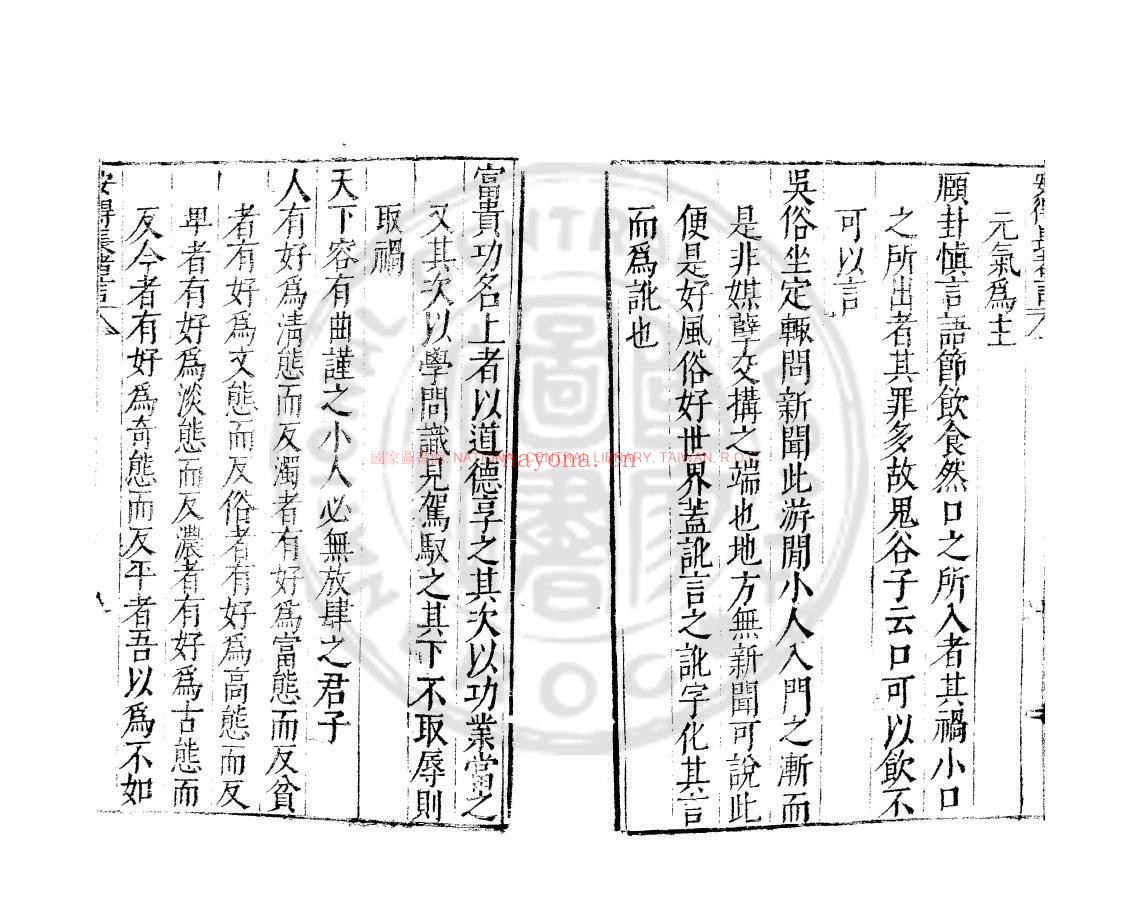 元氣爲主
頤卦慎言語節飲食然口之所入者其禍小口
之所出者其罪多故鬼谷子云口可以飲不
可以言
吳俗坐定輒問新聞此游閒小人入門之漸而
是非媒孽交搆之端也地方無新聞可說此
便是好風俗好世界蓋訛言之訛字化其言
而爲訛也
富貴功名上者以道德享之其次以功業當之
又其次以學問識見駕馭之其下不取辱則
取禍
天下容有曲謹之小人必無放肆之君子
人有好爲清態而反濁者有好爲富態而反貧
者有好爲文態而反俗者有好爲高態而反
卑者有好爲淡態而反濃者有好爲古態而
反今者有好爲奇態而反平者吾以爲不如
安得長者言
國家圖書館 NATIONAL CENTRAL LIBRARY, TAIWAN, R.O.C
nayona.cn